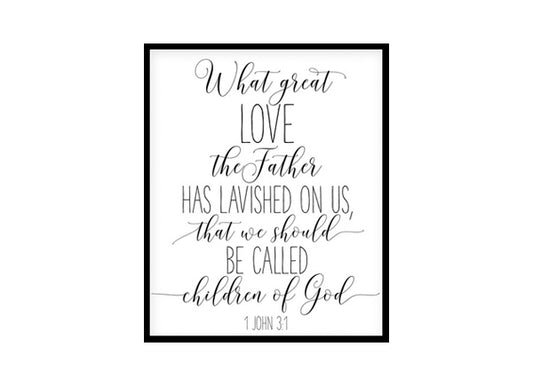 What great
LOVE
the Father
HAS LAVISHED ON US,
that we should
BE CALLED
children of God
1 JOHN 3:1